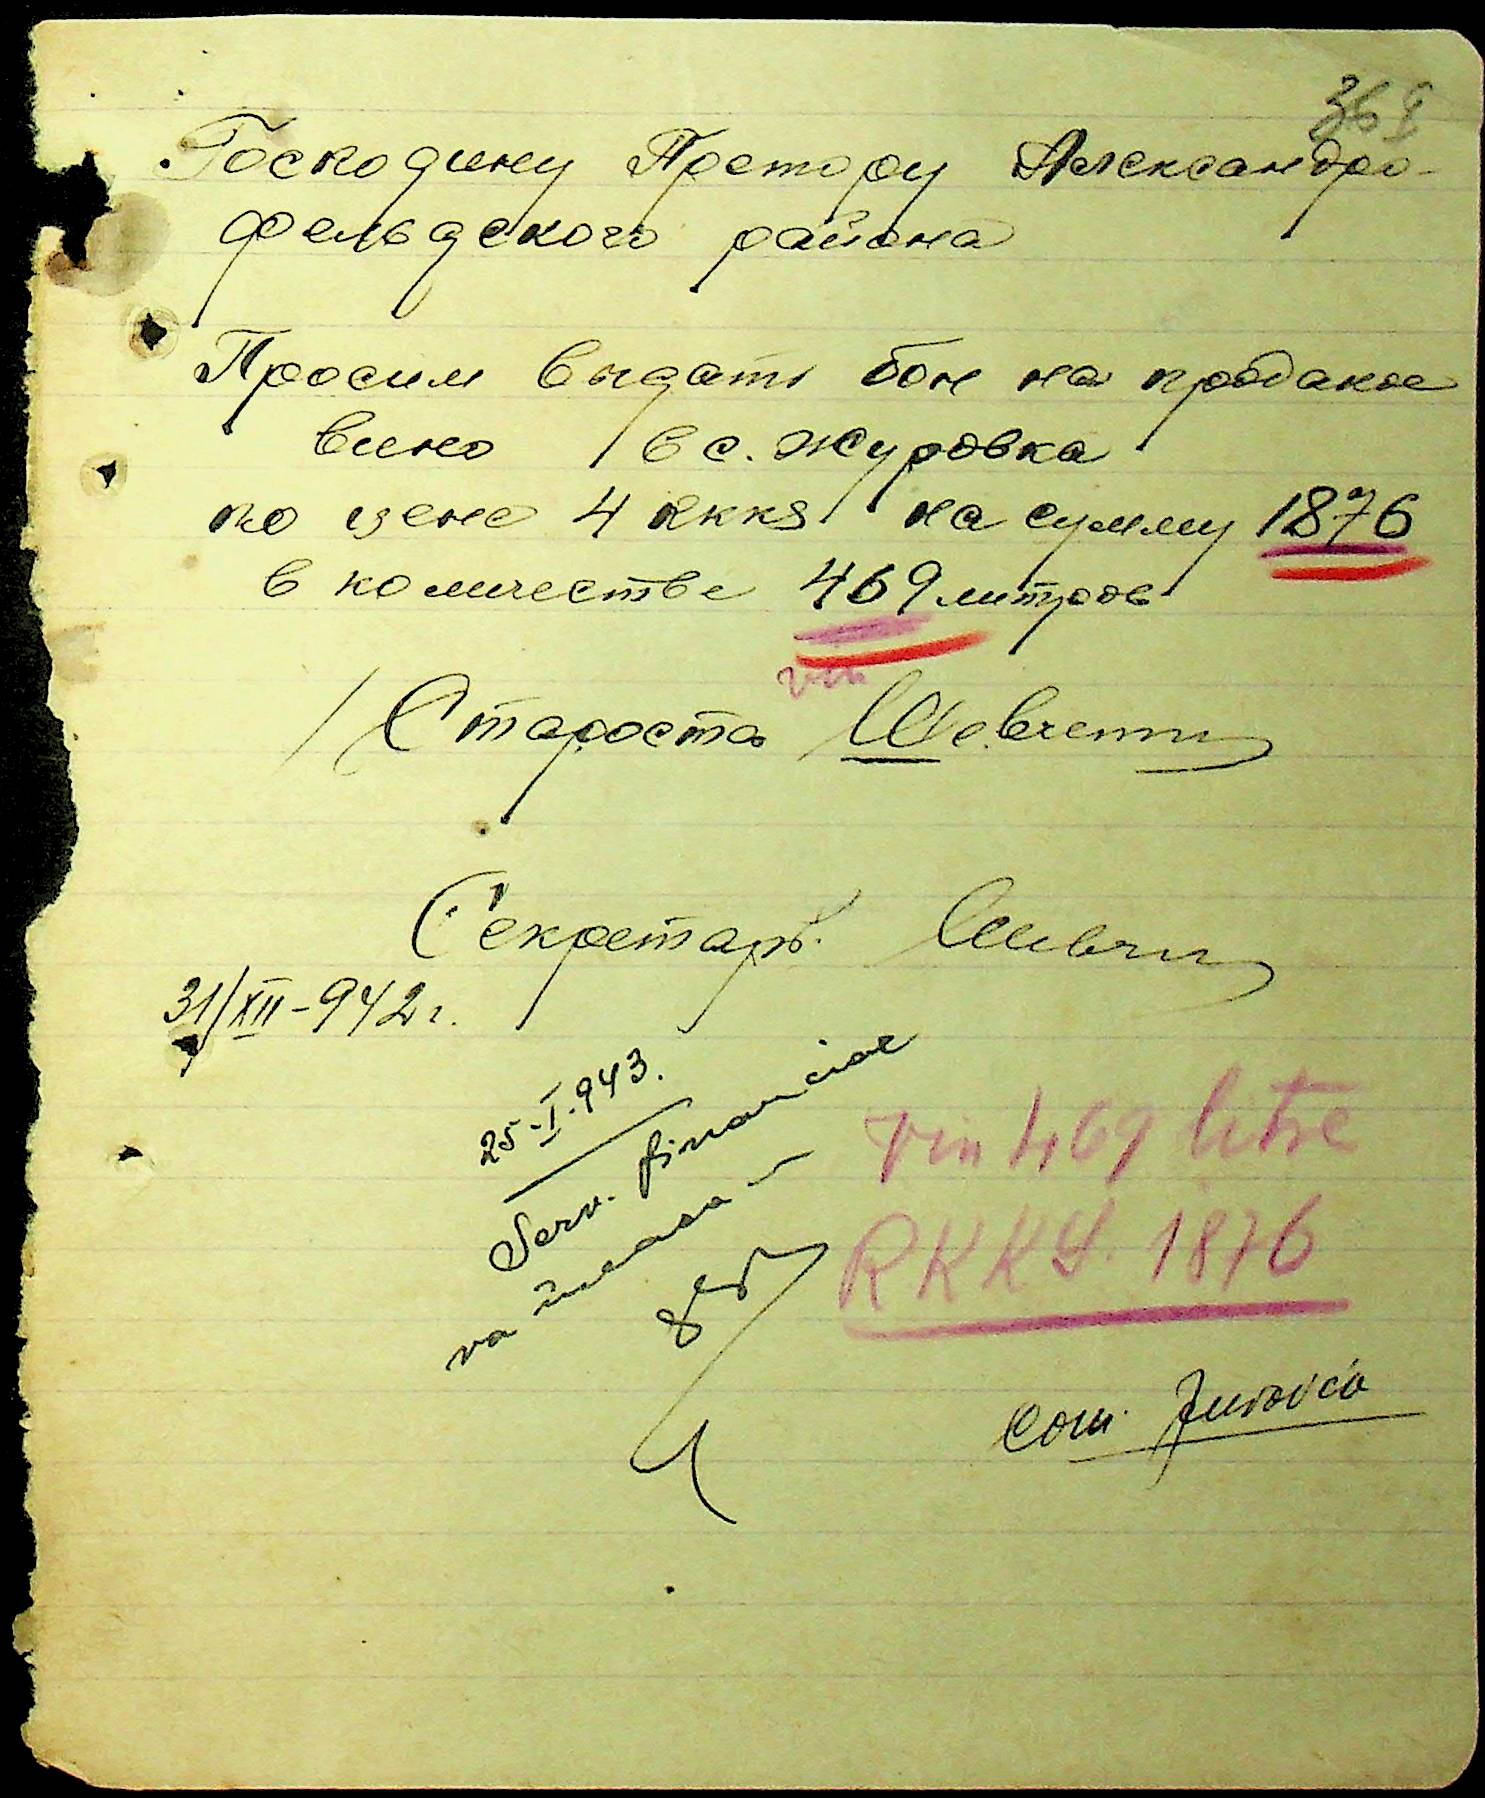 36
Господину Претору Александро-
фельдского района
Просим выдать бон на проданое
вино в с. Журовка
по цене 4 RKKS на сумму 1876
в количестве 469 литров
vin
Староста Шевченко
Секретарь
31/XII-942 г.
25-I-943.
Serv. financiar
va încasa
vin 469 litre
RKKS. 1876
Com. Jurovca